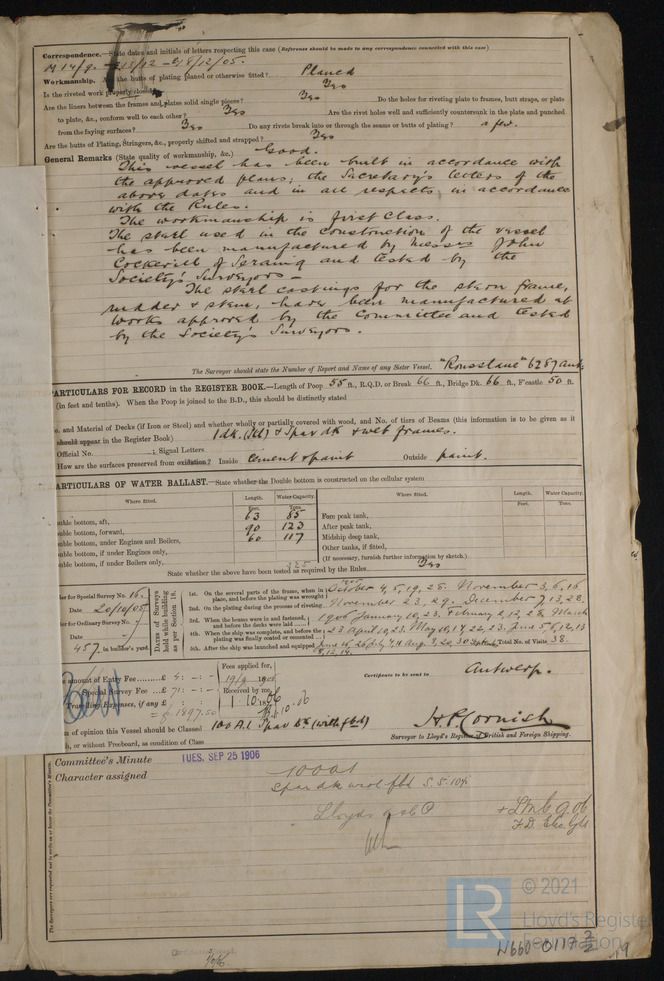 Correspondence.—State dates and initials of letters respecting this case (Reference should be made to any correspondence connected with this case)
M 14/9. 8/12/05.
Workmanship. the butts of plating planed or otherwise fitted? Planed
Is the riveted work properly Yes
Are the liners between the frames and plates solid single pieces? Yes Do the holes for riveting plate to frames, butt straps, or plate
to plate, &c., conform well to each other? Yes Are the rivet holes well and sufficiently countersunk in the plate and punched
from the faying surfaces? Yes Do any rivets break into or through the seams or butts of plating? a few.
Are the butts of Plating, Stringers, &c., properly shifted and strapped? Yes
General Remarks (State quality of workmanship, &c.) Good.
This vessel has been built in accordance with
the approved plans; the Secretary's letters of the
above dates and in all respects in accordance
with the Rules.
The workmanship is first class.
The steel used in the construction of the vessel
has been manufactured by Messrs John
Cockerill of Seraing and tested by the
Society's Surveyors —
The steel castings for the stern frame,
rudder & stem, have been manufactured at
works approved by the Committee and tested
by the Society's Surveyors.
The Surveyor should state the Number of Report and Name of any Sister Vessel. 6287 Ant
ARTICULARS FOR RECORD in the REGISTER BOOK.—Length of Poop 55 ft., R.Q.D. or Break 66 ft., Bridge Dk. 66 ft., F'castle 50 ft.
(in feet and tenths). When the Poop is joined to the B.D., this should be distinctly stated
and Material of Decks (if Iron or Steel) and whether wholly or partially covered with wood, and No. of tiers of Beams (this information is to be given as it
should appear in the Register Book) 1 dk. (Stl) & Spar dk & web frames.
Official No. ; Signal Letters
How are the surfaces preserved from oxidation? Inside Cement & paint Outside paint.
ARTICULARS OF WATER BALLAST.—State whether the Double bottom is constructed on the cellular system
Where fitted. Length. Water Capacity. Where fitted. Length. Water Capacity.
Feet. Tons. Feet. Tons.
uble bottom, aft, 63 85 Fore peak tank,
uble bottom, forward, 90 123 After peak tank,
uble bottom, under Engines and Boilers, 60 117 Midship deep tank,
uble bottom, if under Engines only, Other tanks, if fitted,
uble bottom, if under Boilers only, 325 (If necessary, furnish further information by sketch.)
State whether the above have been tested as required by the Rules Yes
der for Special Survey No. 16.
Date 20/10/05
der for Ordinary Survey No.
Date
457 in builder's yard.
Dates of Surveys held while building as per Section 18.
1st. On the several parts of the frame, when in place, and before the plating was wrought October 4, 5, 19, 28. November 3, 6, 16
2nd. On the plating during the process of riveting November 23, 29. December 7, 13, 28.
3rd. When the beams were in and fastened, and before the decks were laid 1906 January 10, 23. February 2, 12, 28. March
4th. When the ship was complete, and before the plating was finally coated or cemented 23 April 10, 23. May 10, 17, 22, 23. June 5, 6, 12, 13
5th. After the ship was launched and equipped Total No. of Visits 38.
amount of Entry Fee £ 4: - : - Fees applied for, 19/9 1906 Certificate to be sent to Antwerp.
Special Survey Fee £ 71: - : - Received by me,
Travelling Expenses, if any £ 1.10.06
m of opinion this Vessel should be Classed 100 A.1 Spar Dk (with fbd) H. P. Cornish
h, or without Freeboard, as condition of Class Surveyor to Lloyd's Register of British and Foreign Shipping.
Committee's Minute TUES. SEP 25 1906
Character assigned 100A1
Spar dk with fbd S.S. 10%
Lloyds
+ LMC 9.06
F.D. Elec lght
The Surveyors are requested not to write on or below the Committee's Minute.
LR
© 2021
Lloyd's Register
Foundation
W660-0117 2/2